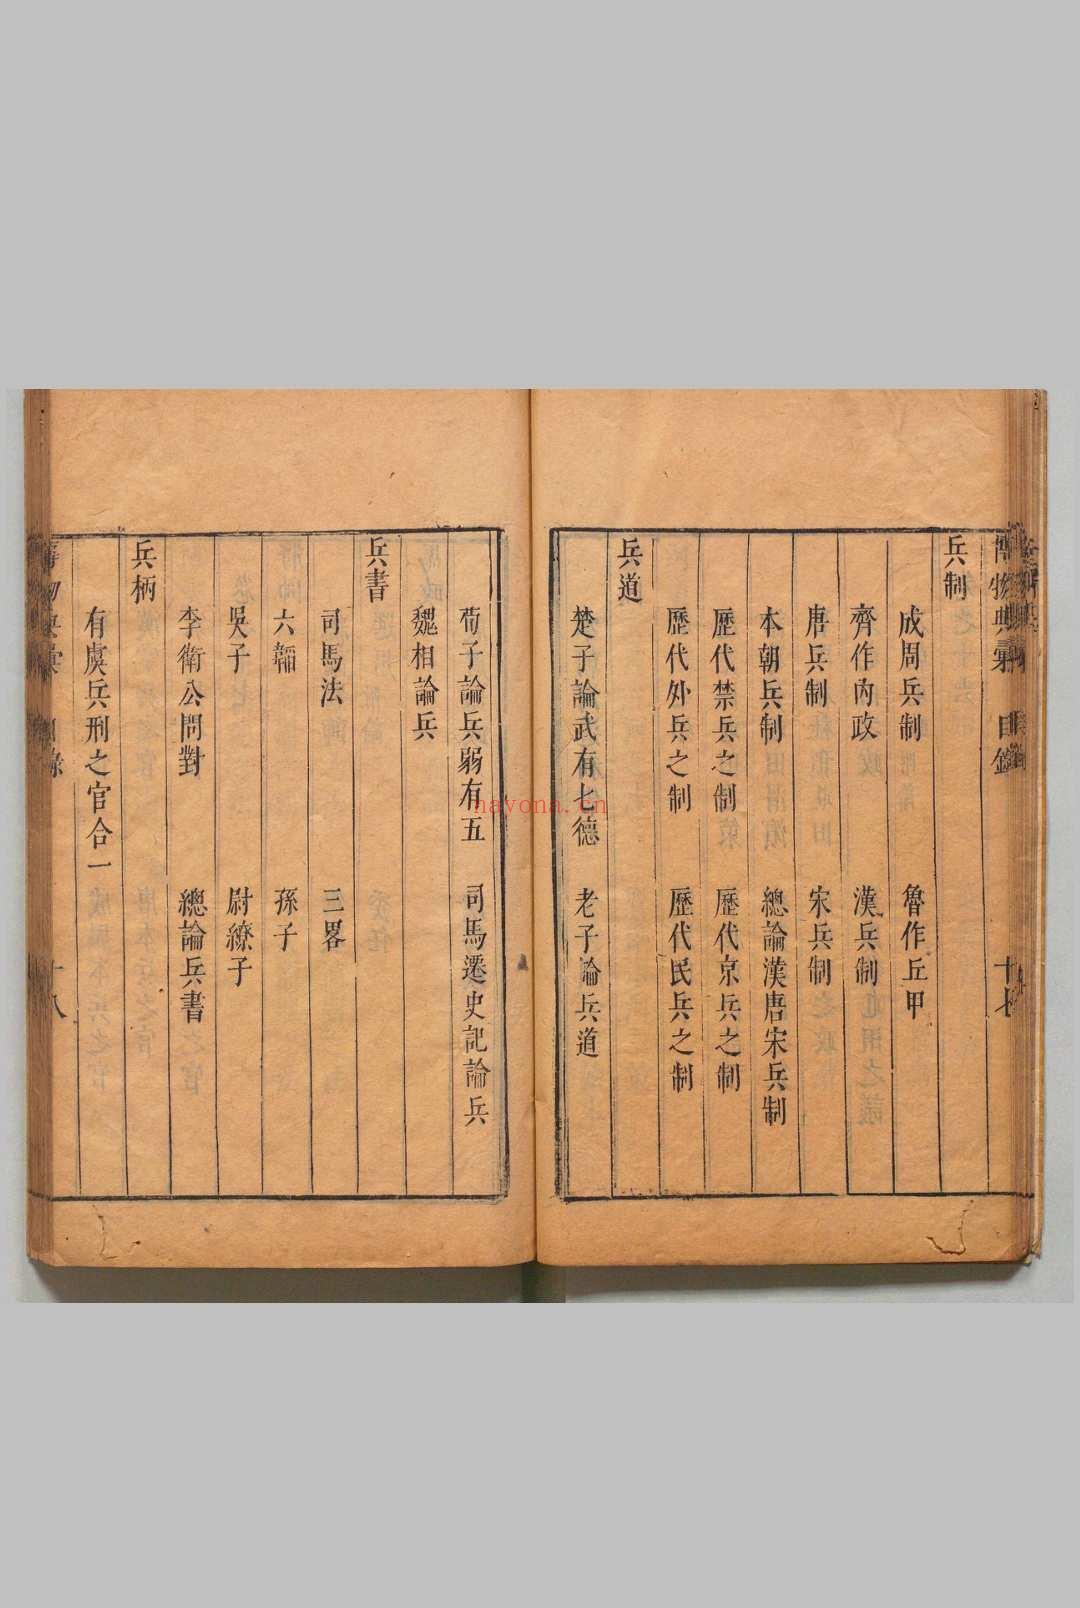 博物典彙 目錄 十七
兵制
成周兵制 魯作丘甲
齊作內政 漢兵制
唐兵制 宋兵制
本朝兵制 總論漢唐宋兵制
歷代禁兵之制 歷代京兵之制
歷代外兵之制 歷代民兵之制
兵道
楚子論武有七德 老子論兵道
荀子論兵弱有五 司馬遷史記論兵
魏相論兵
兵書
司馬法 三畧
六韜 孫子
吳子 尉繚子
李衛公問對 總論兵書
兵柄
有虞兵刑之官合一
十八
nayona.cn